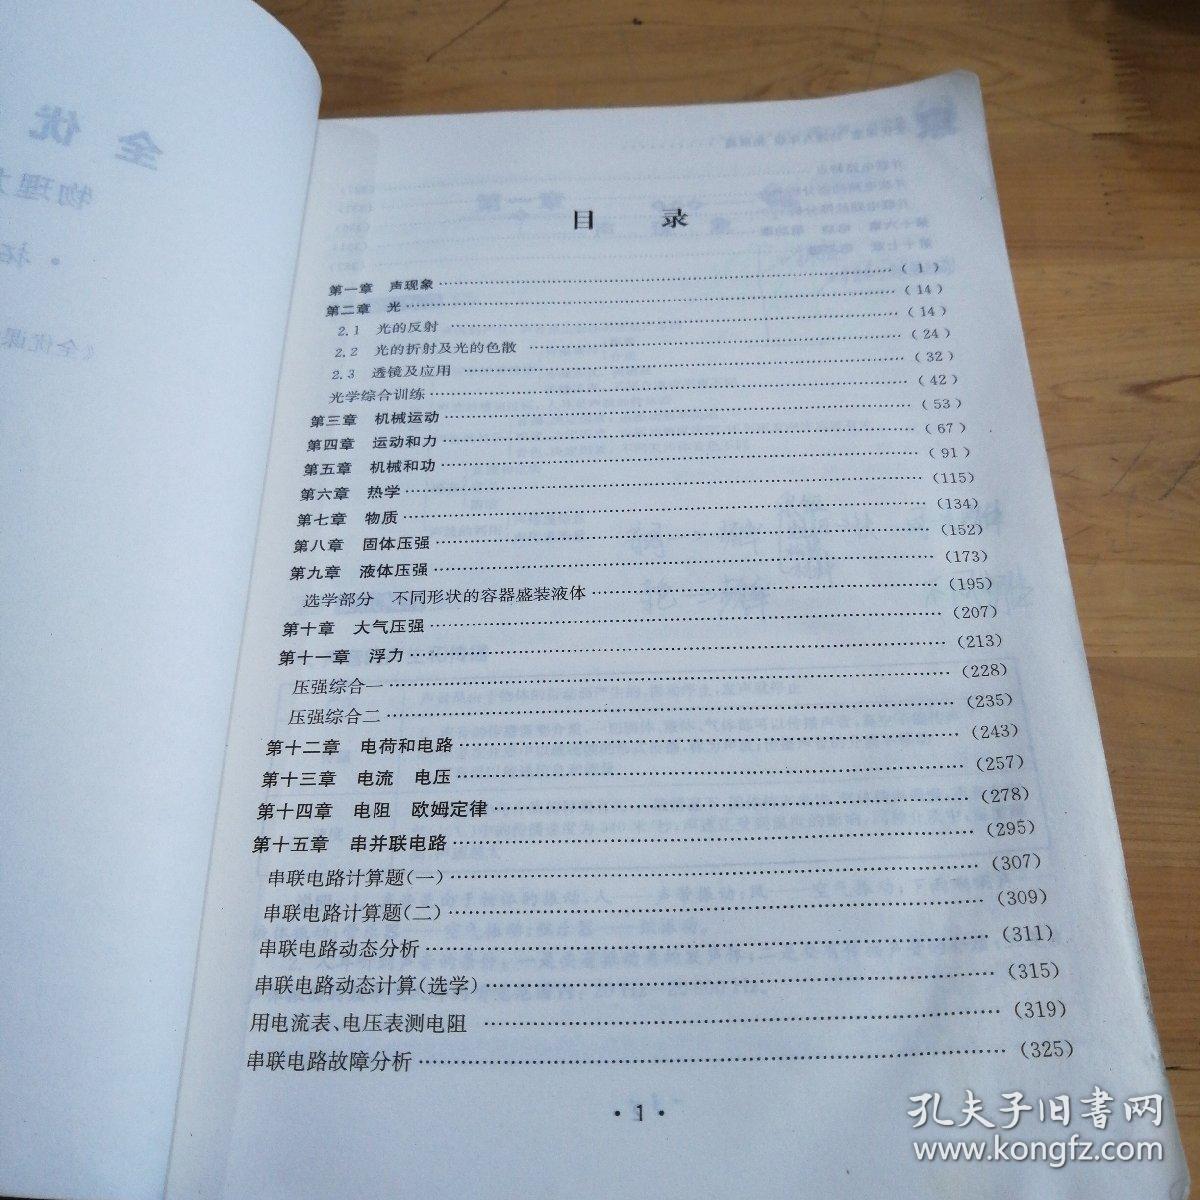 目 录
第一章 声现象……(1)
第二章 光……(14)
2.1 光的反射……(14)
2.2 光的折射及光的色散……(24)
2.3 透镜及应用……(32)
光学综合训练……(42)
第三章 机械运动……(53)
第四章 运动和力……(67)
第五章 机械和功……(91)
第六章 热学……(115)
第七章 物质……(134)
第八章 固体压强……(152)
第九章 液体压强……(173)
选学部分 不同形状的容器盛装液体……(195)
第十章 大气压强……(207)
第十一章 浮力……(213)
压强综合一……(228)
压强综合二……(235)
第十二章 电荷和电路……(243)
第十三章 电流 电压……(257)
第十四章 电阻 欧姆定律……(278)
第十五章 串并联电路……(295)
串联电路计算题(一)……(307)
串联电路计算题(二)……(309)
串联电路动态分析……(311)
串联电路动态计算(选学)……(315)
用电流表、电压表测电阻……(319)
串联电路故障分析……(325)
·1·
孔夫子旧书网
www.kongfz.com